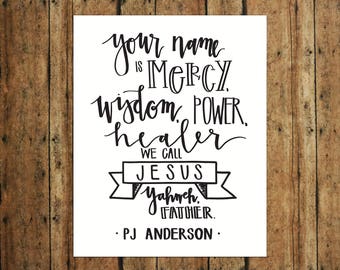 your name
is MERCY,
wisdom, POWER,
healer
WE CALL
JESUS
Yahweh,
FATHER.
· PJ ANDERSON ·